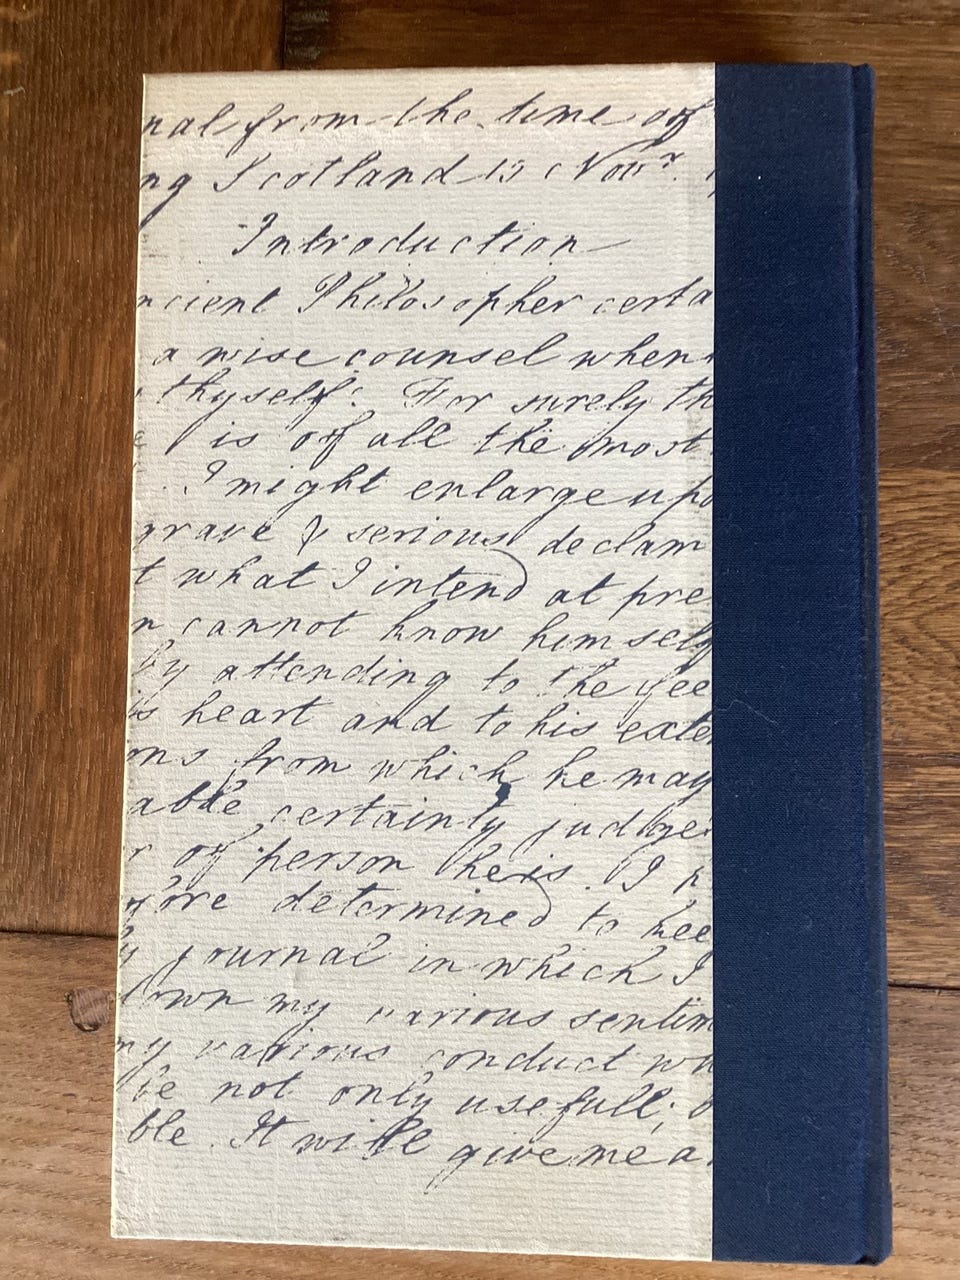 nal from the time of
ng Scotland 15 Novr.
Introduction
ncient Philosopher certa
a wise counsel when
thyself! For surely th
e is of all the most
I might enlarge upo
grave & serious declam
t what I intend at pre
n cannot know himself
by attending to the fee
is heart and to his exte
ons from which he may
able certainly judge
r of person he is. I h
fore determined to kee
ly journal in which I
down my various sentim
my various conduct wh
be not only usefull; b
ble. It will give me a